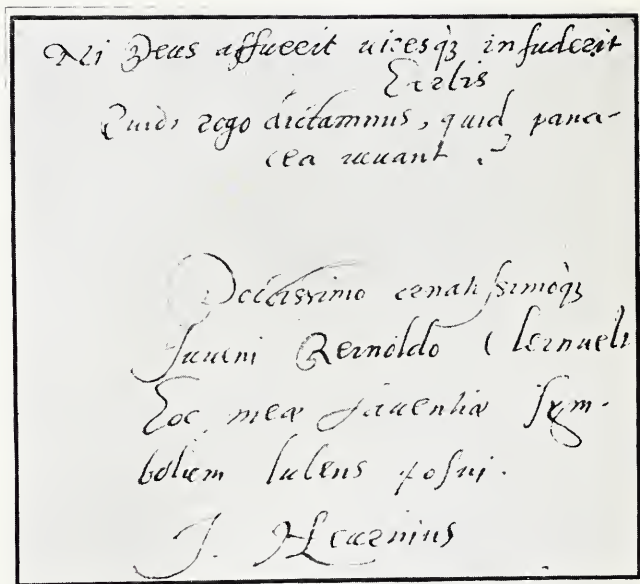 Ni Deus affuerit uiresq; infuderit
Herbis
Quid, rogo dictamnus, quid pana-
cea iuuant?
Doctissimo ornatissimoq;
Iuueni
Hoc meæ fauentiæ sym-
bolum lubens posui.
J. Heurnius